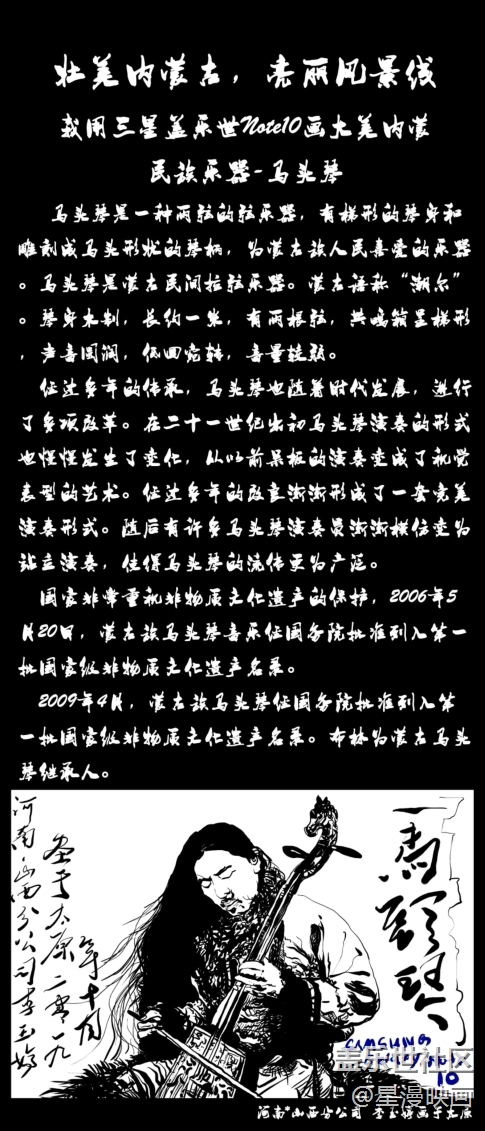 壮美内蒙古，亮丽风景线
我用三星盖乐世Note10画大美内蒙
民族乐器-马头琴
马头琴是一种两弦的弦乐器，有梯形的琴身和
雕刻成马头形状的琴柄，为蒙古族人民喜爱的乐器
。马头琴是蒙古民间拉弦乐器。蒙古语称“潮尔”
。琴身木制，长约一米，有两根弦，共鸣箱呈梯形
，声音圆润，低回宛转，音量较弱。
经过多年的传承，马头琴也随着时代发展，进行
了多项改革。在二十一世纪出初马头琴演奏的形式
也慢慢发生了变化，从以前呆板的演奏变成了视觉
表型的艺术。经过多年的改良渐渐形成了一套完美
演奏形式。随后有许多马头琴演奏员渐渐模仿变为
站立演奏，使得马头琴的流传更为广泛。
国家非常重视非物质文化遗产的保护，2006年5
月20日，蒙古族马头琴音乐经国务院批准列入第一
批国家级非物质文化遗产名录。
2009年4月，蒙古族马头琴经国务院批准列入第
一批国家级非物质文化遗产名录。布林为蒙古马头
琴继承人。
马头琴
画于太原二零一九
年十月
河南·山西分公司李玉
SAMSUNG
10
盖乐世社区
@星漫映画
河南*山西分公司 李玉 画于太原